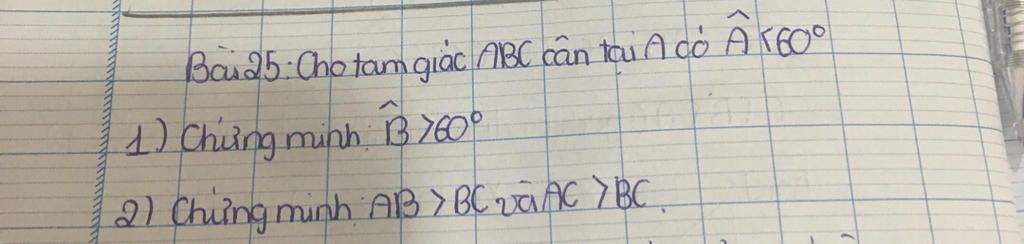 Bài 25: Cho tam giác ABC cân tại A có Â < 60°
1) Chứng minh: B̂ > 60°
2) Chứng minh: AB > BC và AC > BC.